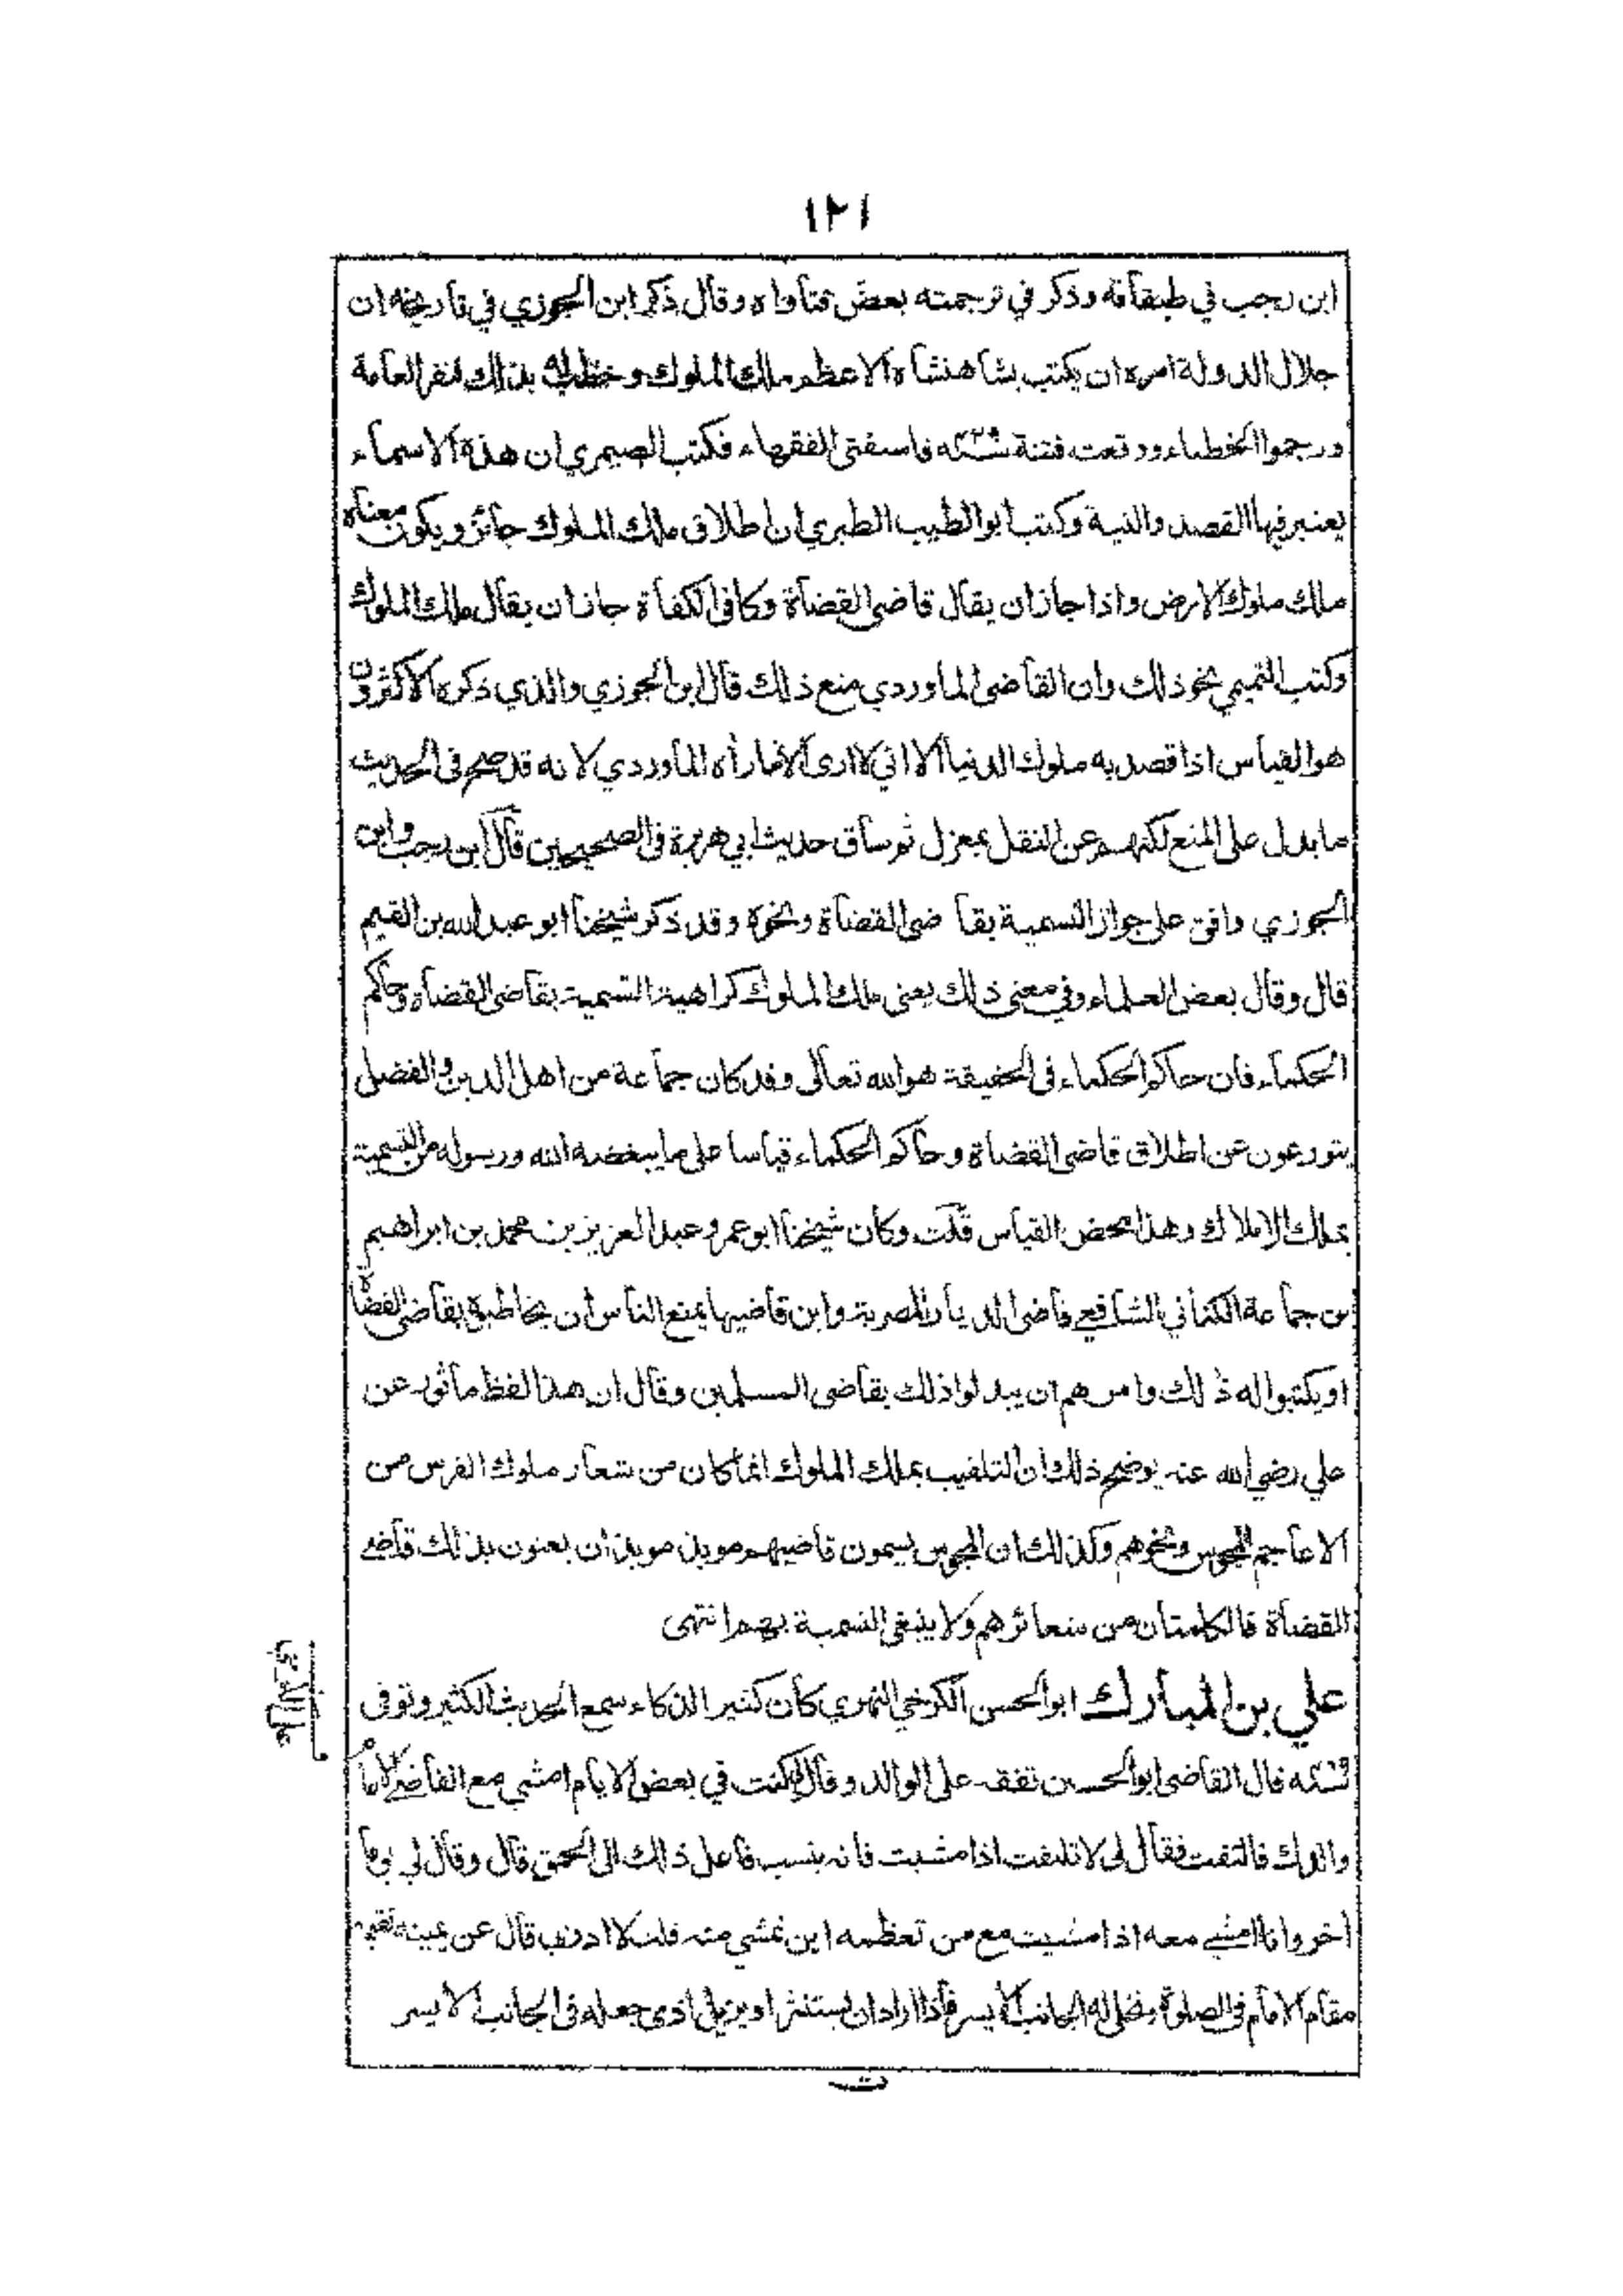 ١٢١
ابن رجب في طبقاته وذكر في ترجمته بعض فتاواه وقال ذكر ابن الجوزي في تاريخه ان
جلال الدولة امره ان يكتب بشاهنشاه الاعظم ملك الملوك وخطب له بذلك فنفر العامة
ورجموا الخطباء ووقعت فتنة فاستفتى الفقهاء فكتب الصيمري ان هذه الاسماء
يعتبر فيها القصد والنية وكتب ابو الطيب الطبري ان اطلاق ملك الملوك جائز ويكون معناه
ملك ملوك الارض واذا جاز ان يقال قاضى القضاة وكافى الكفاة جاز ان يقال ملك الملوك
وكتب التميمي نحو ذلك وان القاضى الماوردي منع ذلك قال ابن الجوزي والذي ذكره الاكثرون
هو القياس اذا قصد به ملوك الدنيا الا اني لا ارى الا ما رأه الماوردي لانه قد صح فى الحديث
ما يدل على المنع لكنهم عن النقل بمعزل ثم ساق حديث ابي هريرة فى الصحيحين قال ابن رجب وابن
الجوزي وافق على جواز التسمية بقاضى القضاة ونحوه وقد ذكر شيخنا ابو عبد الله بن القيم
قال وقال بعض العلماء وفي معنى ذلك يعنى ملك الملوك كراهية التسمية بقاضى القضاة وحاكم
الحكماء فان حاكم الحكماء فى الحقيقة هو الله تعالى وقد كان جماعة من اهل الدين والفضل
يتورعون عن اطلاق قاضى القضاة وحاكم الحكماء قياسا على ما يبغضه الله ورسوله من التسمية
بملك الاملاك وهذا محض القياس قلت وكان شيخنا ابو عمر وعبد العزيز بن محمد بن ابراهيم
بن جماعة الكناني الشافعي قاضى الديار المصرية وابن قاضيها يمنع الناس ان يخاطبوه بقاضى القضاة
او يكتبوا له ذلك وامرهم ان يبدلوا ذلك بقاضى المسلمين وقال ان هذا لفظ مأثور عن
علي رضي الله عنه يوضح ذلك ان التلقيب بملك الملوك انما كان من شعار ملوك الفرس من
الاعاجم المجوس ونحوهم وكذلك ان المجوس يسمون قاضيهم موبذ موبذان يعنون بذلك قاضي
القضاة فالكلمتان من شعائرهم ولا ينبغى التسمية بهما انتهى
علي بن المبارك ابو الحسن الكرخي النهري كان كثير الذكاء سمع الحديث الكثير وتوفى
قال القاضى ابو الحسين تفقه على الوالد وقال كنت في بعض الايام امشي مع القاضي الامام
والدك فالتفت فقال لى لا تلتفت اذا مشيت فانه ينسب فاعل ذلك الى الحمق قال وقال لي يوما
اخر وانا امشي معه اذا مشيت مع من تعظمه اين تمشي منه قلت لا ادرى قال عن يمينه تقيمه
مقام الامام فى الصلوة وتخلى له الجانب الايسر فاذا اراد ان يستنثر او يزيل اذى جعله فى الجانب الايسر